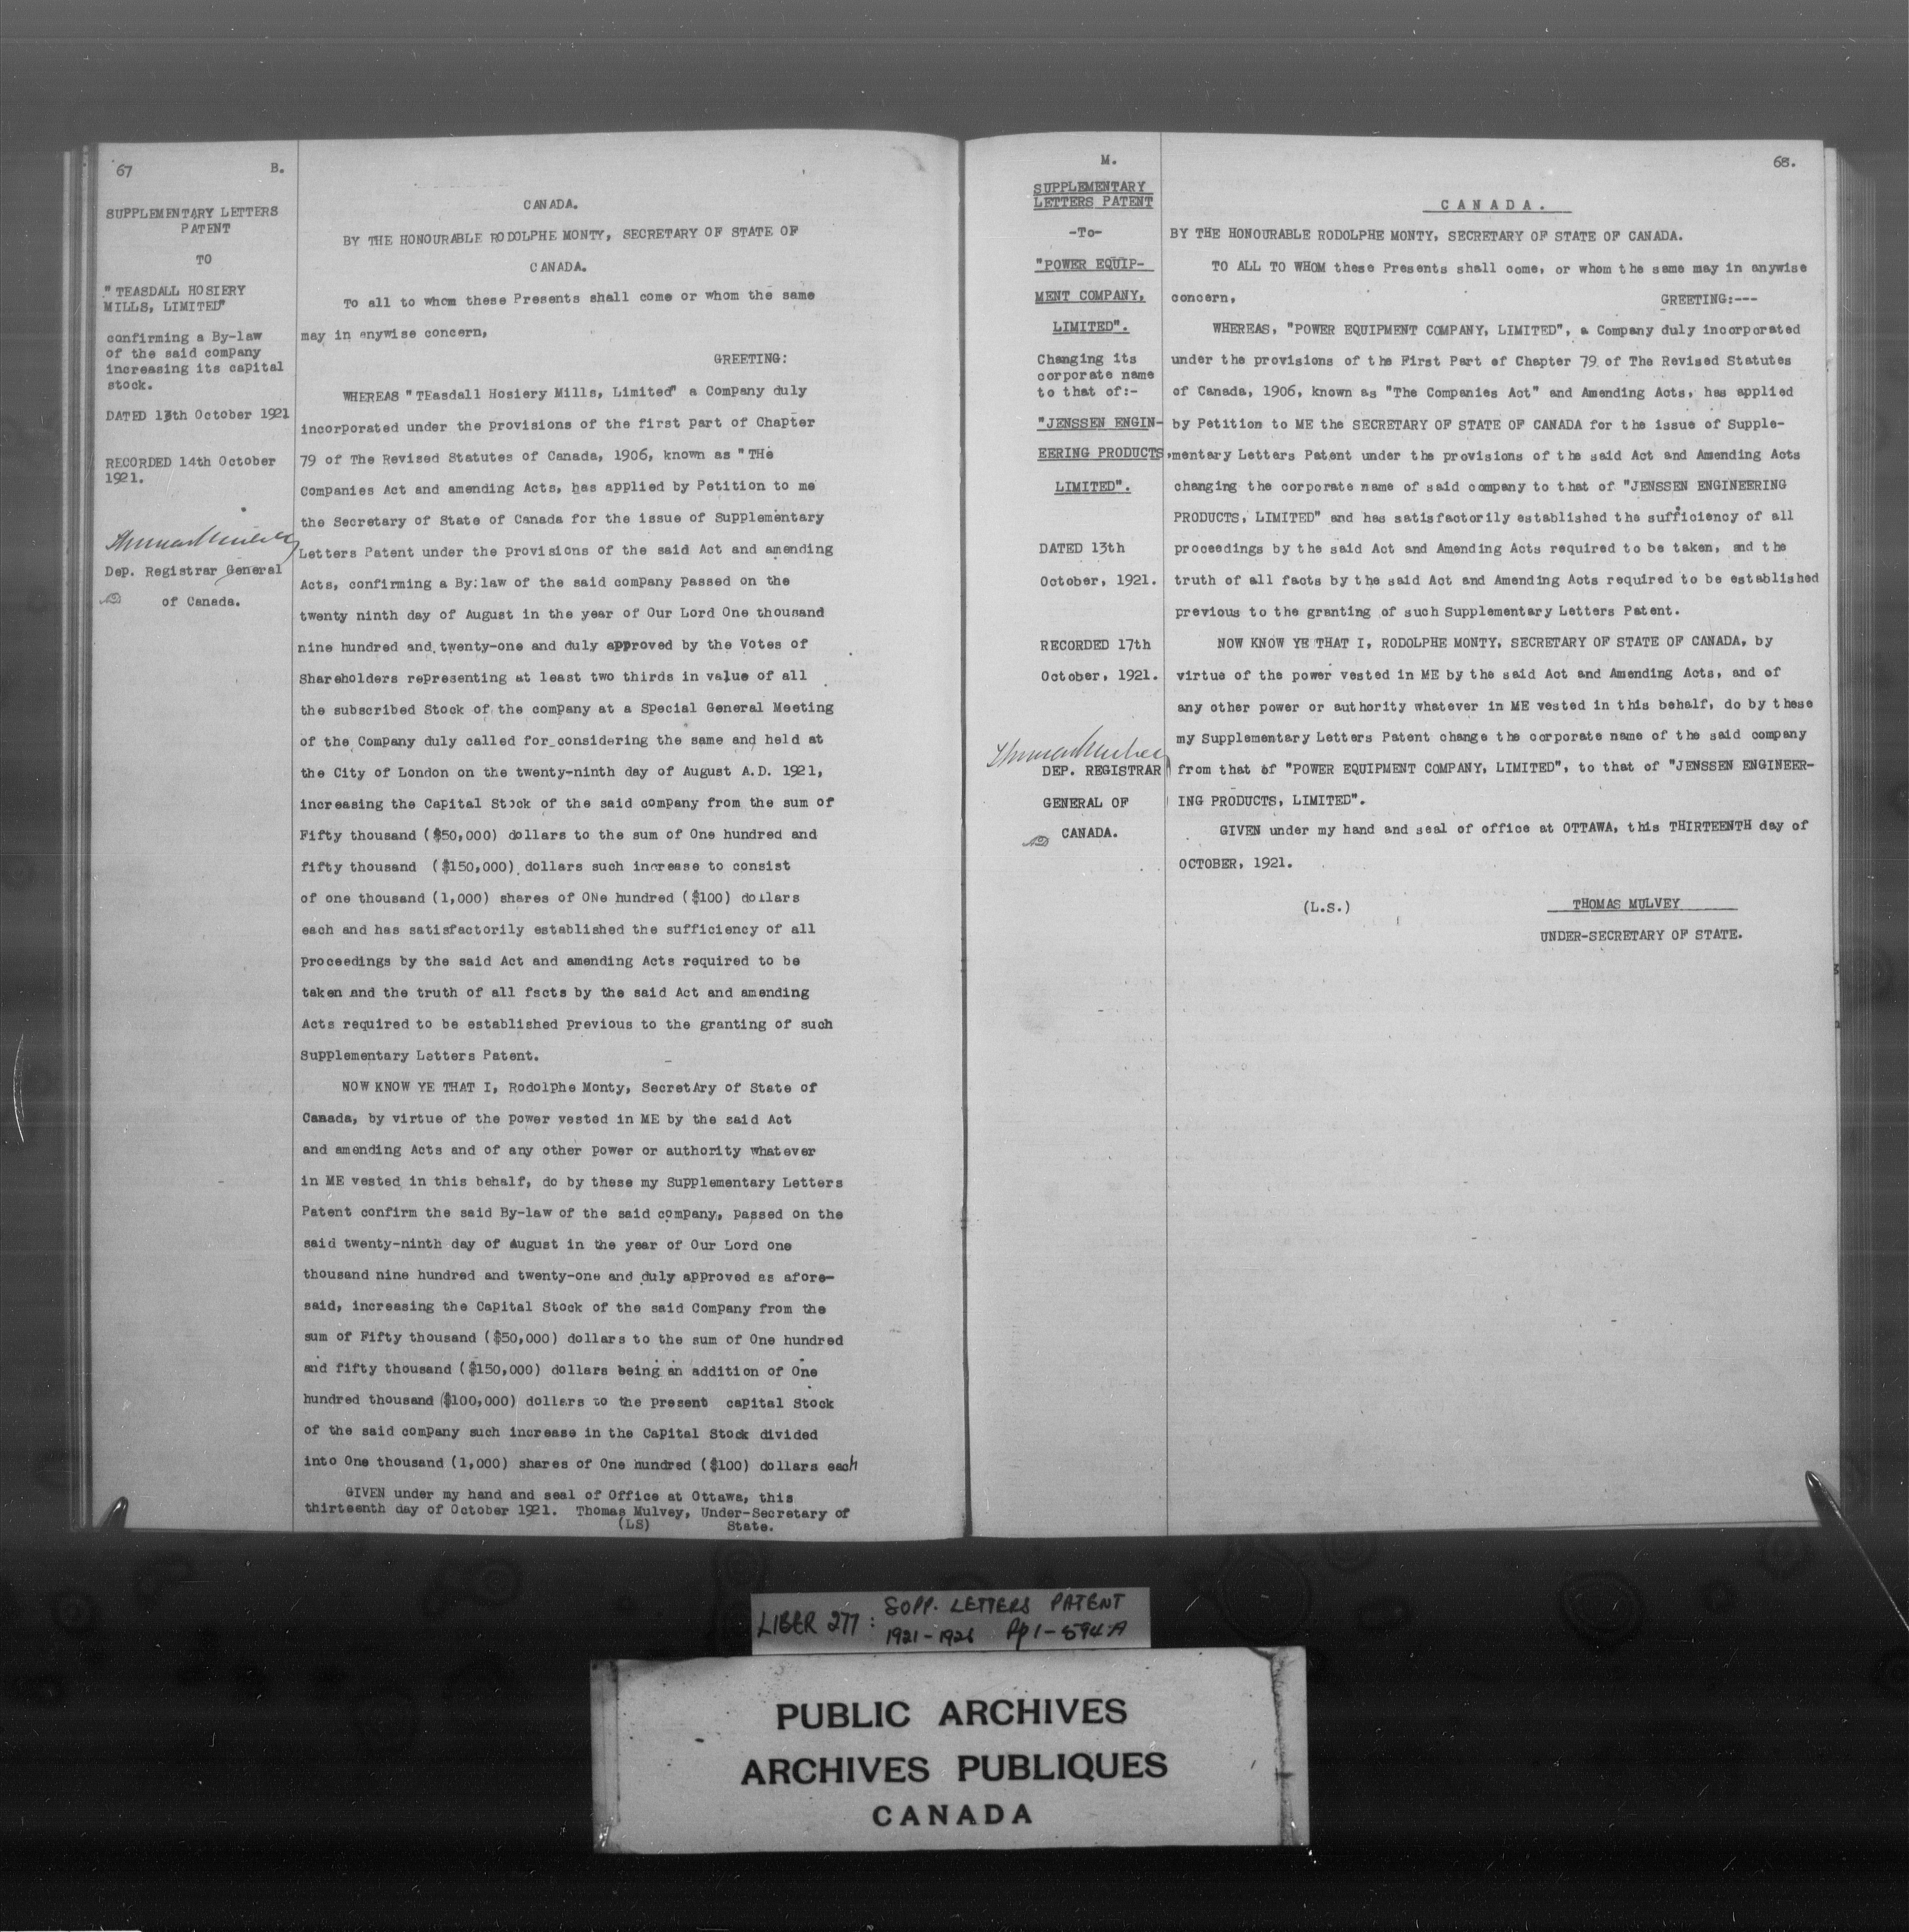 67 B.
SUPPLEMENTARY LETTERS
PATENT
TO
" TEASDALL HOSIERY
MILLS, LIMITED"
confirming a By-law
of the said company
increasing its capital
stock.
DATED 13th October 1921
RECORDED 14th October
1921.
Dep. Registrar General
of Canada.
CANADA.
BY THE HONOURABLE RODOLPHE MONTY, SECRETARY OF STATE OF
CANADA.
To all to whom these Presents shall come or whom the same
may in anywise concern,
GREETING:
WHEREAS " TEasdall Hosiery Mills, Limited" a Company duly
incorporated under the provisions of the first part of Chapter
79 of The Revised Statutes of Canada, 1906, known as " THe
Companies Act and amending Acts, has applied by Petition to me
the Secretary of State of Canada for the issue of Supplementary
Letters Patent under the provisions of the said Act and amending
Acts, confirming a By:law of the said company passed on the
twenty ninth day of August in the year of Our Lord One thousand
nine hundred and twenty-one and duly approved by the Votes of
Shareholders representing at least two thirds in value of all
the subscribed Stock of the company at a Special General Meeting
of the Company duly called for considering the same and held at
the City of London on the twenty-ninth day of August A.D. 1921,
increasing the Capital Stock of the said company from the sum of
Fifty thousand ($50,000) dollars to the sum of One hundred and
fifty thousand ($150,000) dollars such increase to consist
of one thousand (1,000) shares of ONe hundred ($100) dollars
each and has satisfactorily established the sufficiency of all
Proceedings by the said Act and amending Acts required to be
taken and the truth of all facts by the said Act and amending
Acts required to be established Previous to the granting of such
Supplementary Letters Patent.
NOW KNOW YE THAT I, Rodolphe Monty, SecretAry of State of
Canada, by virtue of the power vested in ME by the said Act
and amending Acts and of any other power or authority whatever
in ME vested in this behalf, do by these my Supplementary Letters
Patent confirm the said By-law of the said company, passed on the
said twenty-ninth day of August in the year of Our Lord one
thousand nine hundred and twenty-one and duly approved as afore-
said, increasing the Capital Stock of the said Company from the
sum of Fifty thousand ($50,000) dollars to the sum of One hundred
and fifty thousand ($150,000) dollars being an addition of One
hundred thousand ($100,000) dollars to the present capital Stock
of the said company such increase in the Capital Stock divided
into One thousand (1,000) shares of One hundred ($100) dollars each
GIVEN under my hand and seal of Office at Ottawa, this
thirteenth day of October 1921. Thomas Mulvey, Under-Secretary of
(LS) State.
M.
SUPPLEMENTARY
LETTERS PATENT
-To-
"POWER EQUIP-
MENT COMPANY,
LIMITED".
Changing its
corporate name
to that of:-
"JENSSEN ENGIN-
EERING PRODUCTS,
LIMITED".
DATED 13th
October, 1921.
RECORDED 17th
October, 1921.
DEP. REGISTRAR
GENERAL OF
CANADA.
68.
CANADA.
BY THE HONOURABLE RODOLPHE MONTY, SECRETARY OF STATE OF CANADA.
TO ALL TO WHOM these Presents shall come, or whom the same may in anywise
concern, GREETING:---
WHEREAS, "POWER EQUIPMENT COMPANY, LIMITED", a Company duly incorporated
under the provisions of the First Part of Chapter 79 of The Revised Statutes
of Canada, 1906, known as "The Companies Act" and Amending Acts, has applied
by Petition to ME the SECRETARY OF STATE OF CANADA for the issue of Supple-
mentary Letters Patent under the provisions of the said Act and Amending Acts
changing the corporate name of said company to that of "JENSSEN ENGINEERING
PRODUCTS, LIMITED" and has satisfactorily established the sufficiency of all
proceedings by the said Act and Amending Acts required to be taken, and the
truth of all facts by the said Act and Amending Acts required to be established
previous to the granting of such Supplementary Letters Patent.
NOW KNOW YE THAT I, RODOLPHE MONTY, SECRETARY OF STATE OF CANADA, by
virtue of the power vested in ME by the said Act and Amending Acts, and of
any other power or authority whatever in ME vested in this behalf, do by these
my Supplementary Letters Patent change the corporate name of the said company
from that of "POWER EQUIPMENT COMPANY, LIMITED", to that of "JENSSEN ENGINEER-
ING PRODUCTS, LIMITED".
GIVEN under my hand and seal of office at OTTAWA, this THIRTEENTH day of
OCTOBER, 1921.
(L.S.) THOMAS MULVEY
UNDER-SECRETARY OF STATE.
LIBER 277: SUPP. LETTERS PATENT
1921-1926 Pp 1-594A
PUBLIC ARCHIVES
ARCHIVES PUBLIQUES
CANADA